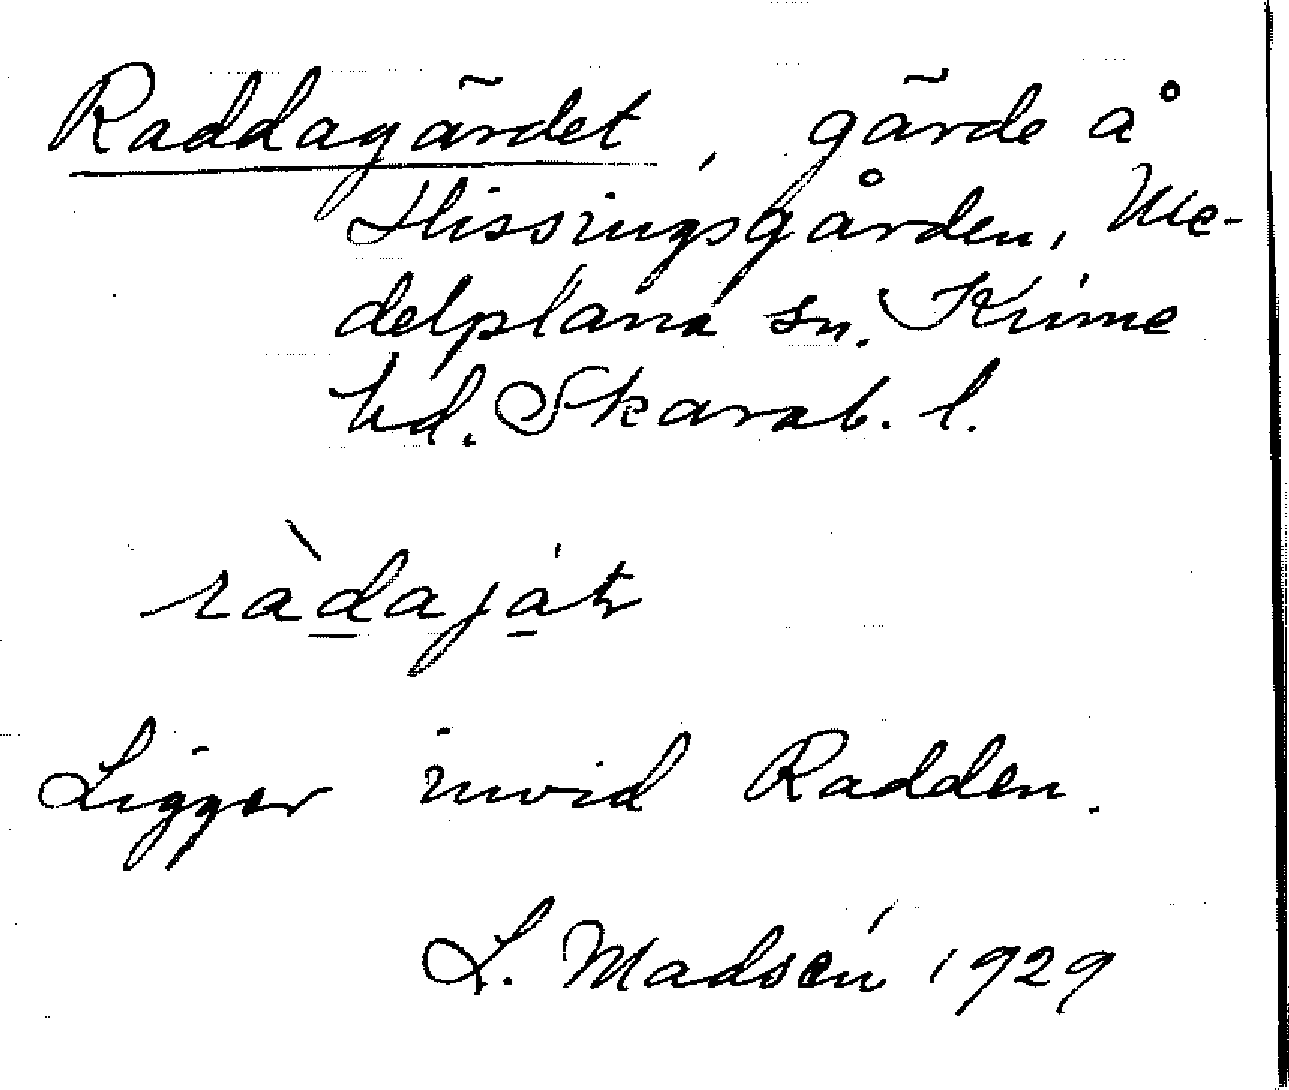 Raddagärdet, gärde å
Hissingsgården, Me-
delplana sn. Kinne
hd. Skarab. l.
ràdaját
Ligger invid Radden.
L. Madsén 1929